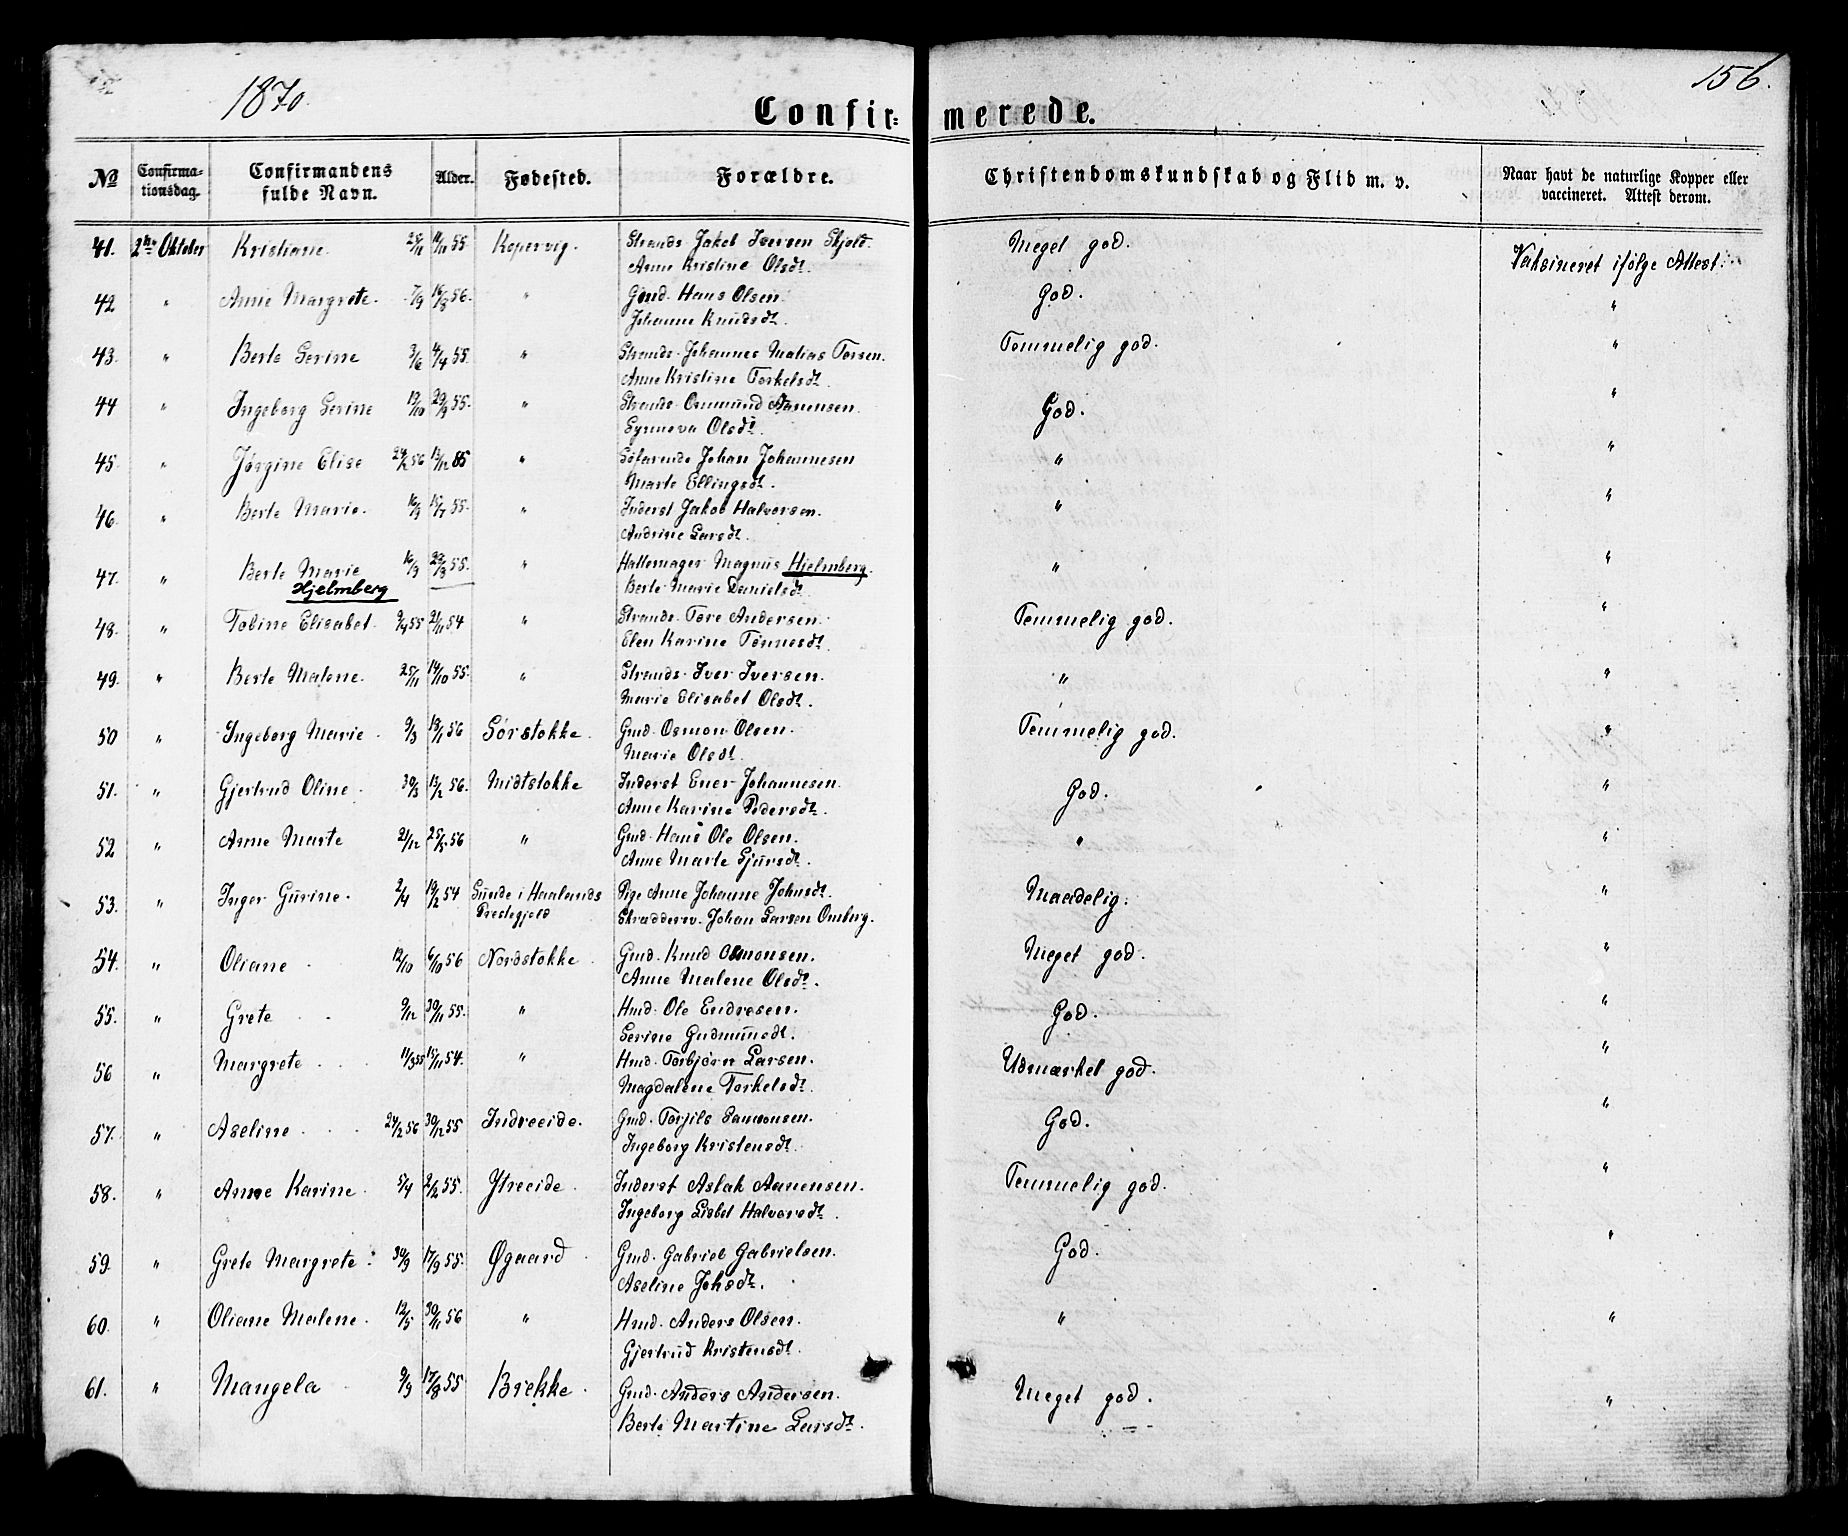 1870.
156.
Confir= merede.
No Confirma-tionsdag. Confirmandens fulde Navn. Alder. Fødested. Forældre. Christendomskundskab og Flid m. v. Naar havt de naturlige Kopper eller vaccineret. Attest derom.
41. 2den Oktober Kristiane. 25/11 55. Kopervig. Strands. Jakob Iversen Skjold. Meget god. Vaksineret ifølge Attest.
Anne Kristine Olsdt.
42 " Anne Margrete. 7/9 16/8 56. " Gmd. Hans Olsen. God. "
Johanne Knudsdt.
43. " Berte Serine 3/6 4/4 55. " Strands. Johannes Matias Torsen. Temmelig god. "
Anne Kristine Torkelsdt.
44 " Ingeborg Serine 19/10 29/9 55. " Strands. Osmund Aanensen. God. "
Synneva Olsdt.
45. " Jørgine Elise 24/2 56 13/12 85 " Søfarende Johan Johannesen " "
Marte Ellingsdt.
46. " Berte Marie. 16/9 15/7 55. " Inderst Jakob Halvorsen. " "
Andrine Larsdt.
47. " Berte Marie 16/9 23/8 55. " Hattemager Magnus Hjelmberg. " "
Hjelmberg Berte Marie Danielsdt.
48. " Tobine Elisabet. 9/4 55 21/11 54 " Strands. Tore Andersen. Temmelig god. "
Elen Karine Tønnesdt.
49. " Berte Malene. 25/11 14/10 55. " Strands. Iver Iversen. " "
Marie Elisabet Olsdt.
50 " Ingeborg Marie. 9/3 18/1 56 Sørstokke. Gmd. Osmon Olsen. Temmelig god. "
Marie Olsdt.
51. " Gjertrud Oline. 30/3 13/2 56. Midtstokke Inderst Ener Johannesen. God. "
Anne Karine Pedersdt.
52 " Anne Marte 21/12 25/5 56 " Gmd. Hans Ole Olsen. " "
Anne Marte Sjursdt.
53. " Inger Gurine. 2/4 19/2 54 Sunde i Haalands Pige Anne Johanne Johnsdt. Maadelig. "
Prestegjeld Skraddersv. Johan Larsen Omberg.
54. " Oliane. 12/10 6/10 56 Nordstokke. Gmd. Knud Osmonsen. Meget god. "
Anne Malene Olsdt.
55. " Grete 9/12 30/11 55. " Hmd. Ole Endresen. God. "
Serine Gudmunsdt.
56 " Margrete 11/3 55 15/11 54. " Hmd. Torbjørn Larsen. Udmærket god. "
Magdalene Torkelsdt.
57. " Aseline 24/2 56 30/12 55 Indreeide. Gmd. Torjils Samonsen. God. "
Ingeborg Kristensdt.
58. " Anne Karine. 5/4 2/2 55. Ytreeide. Inderst Aslak Aanensen. Temmelig god. "
Ingeborg Lisbet Halvorsdt.
59. " Grete Margrete. 30/9 17/9 55. Øgaard Gmd. Gabriel Gabrielsen. God. "
Aseline Johsdt.
60. " Oliane Malene. 12/5 30/11 56 " Hmd. Anders Olsen. " "
Gjertrud Kristensdt.
61. " Mangela 9/9 17/8 55 Brekke. Gmd. Anders Andersen. Meget god. "
Berte Martine Larsdt.